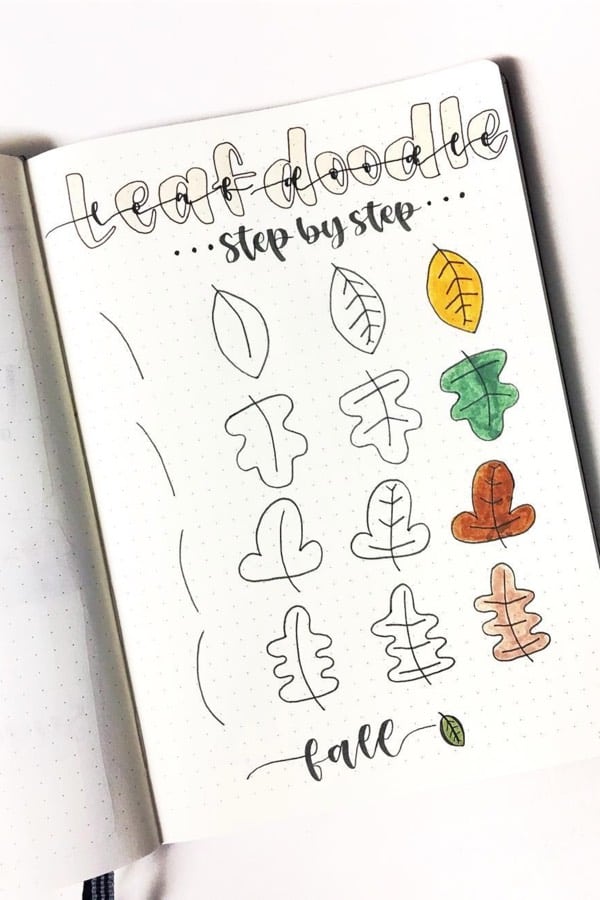 Leaf doodle
leaf doodle
...step by step...
fall